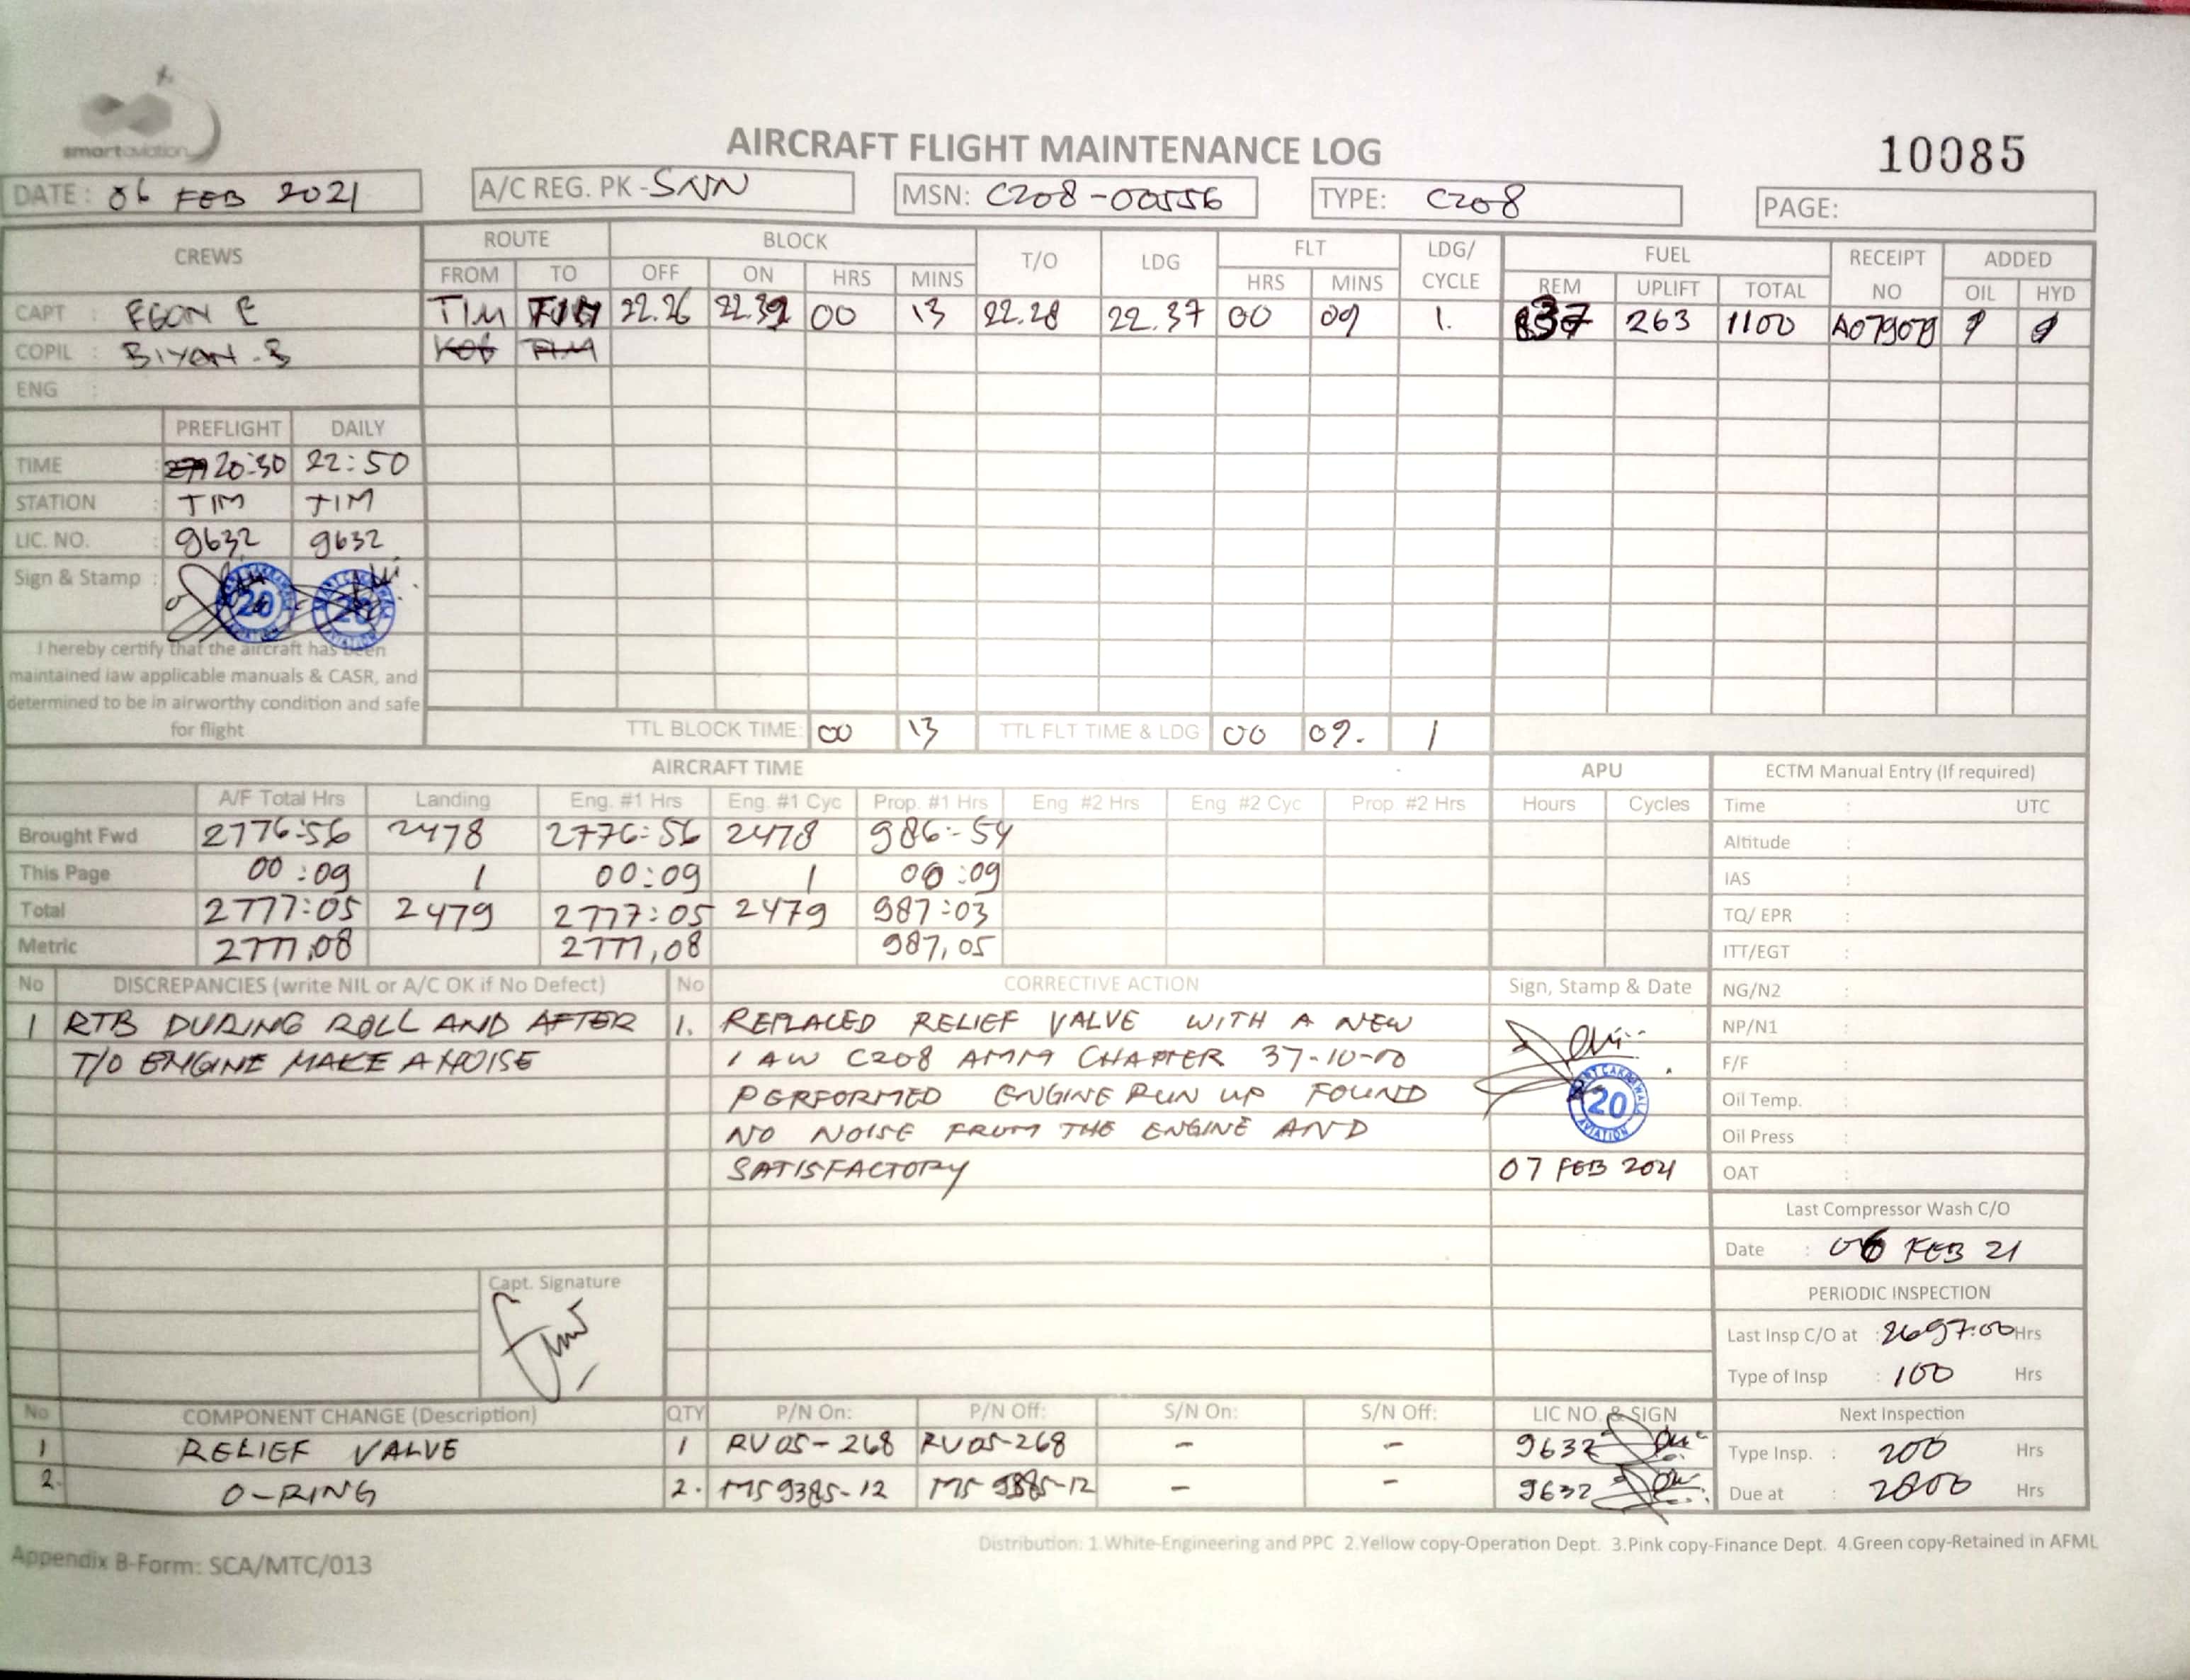 smartaviation
AIRCRAFT FLIGHT MAINTENANCE LOG
10085
DATE: 06 FEB 2021
A/C REG. PK-SNN
MSN: C208-00556
TYPE: C208
PAGE:
CREWS ROUTE BLOCK T/O LDG FLT LDG/ CYCLE FUEL RECEIPT NO ADDED
FROM TO OFF ON HRS MINS HRS MINS REM UPLIFT TOTAL OIL HYD
CAPT : EGON E TIM TIM 22.26 22.39 00 13 22.28 22.37 00 09 1. 837 263 1100
COPIL : BIYAN.B KOG TIM
ENG :
PREFLIGHT DAILY
TIME : 20:30 22:50
STATION : TIM TIM
LIC. NO. : 9632 9632
Sign & Stamp : 20 20
I hereby certify that the aircraft has been
maintained iaw applicable manuals & CASR, and
determined to be in airworthy condition and safe
for flight
TTL BLOCK TIME: 00 13 TTL FLT TIME & LDG 00 09. 1
AIRCRAFT TIME APU ECTM Manual Entry (If required)
A/F Total Hrs Landing Eng. #1 Hrs Eng. #1 Cyc Prop. #1 Hrs Eng #2 Hrs Eng #2 Cyc Prop #2 Hrs Hours Cycles Time : UTC
Brought Fwd 2776:56 2478 2776:56 2478 986:54 Altitude :
This Page 00:09 1 00:09 1 00:09 IAS :
Total 2777:05 2479 2777:05 2479 987:03 TQ/ EPR :
Metric 2777,08 2777,08 987,05 ITT/EGT :
No DISCREPANCIES (write NIL or A/C OK if No Defect) No CORRECTIVE ACTION Sign, Stamp & Date NG/N2 :
1 RTB DURING ROLL AND AFTER 1. REPLACED RELIEF VALVE WITH A NEW NP/N1 :
T/O ENGINE MAKE A NOISE IAW C208 AMM CHAPTER 37-10-00 F/F :
PERFORMED ENGINE RUN UP FOUND 20 Oil Temp. :
NO NOISE FROM THE ENGINE AND AVIATION Oil Press :
SATISFACTORY 07 FEB 2021 OAT :
Last Compressor Wash C/O
Date : 06 FEB 21
Capt. Signature
PERIODIC INSPECTION
Last Insp C/O at : 2697:00 Hrs
Type of Insp : 100 Hrs
No COMPONENT CHANGE (Description) QTY P/N On: P/N Off: S/N On: S/N Off: LIC NO. & SIGN Next Inspection
1 RELIEF VALVE 1 RV05-268 RV05-268 - - 9632 Type Insp. : 200 Hrs
2. O-RING 2. MS9385-12 MS9385-12 - - 9632 Due at : 2800 Hrs
Distribution: 1.White-Engineering and PPC 2.Yellow copy-Operation Dept. 3.Pink copy-Finance Dept. 4.Green copy-Retained in AFML
Appendix B-Form: SCA/MTC/013